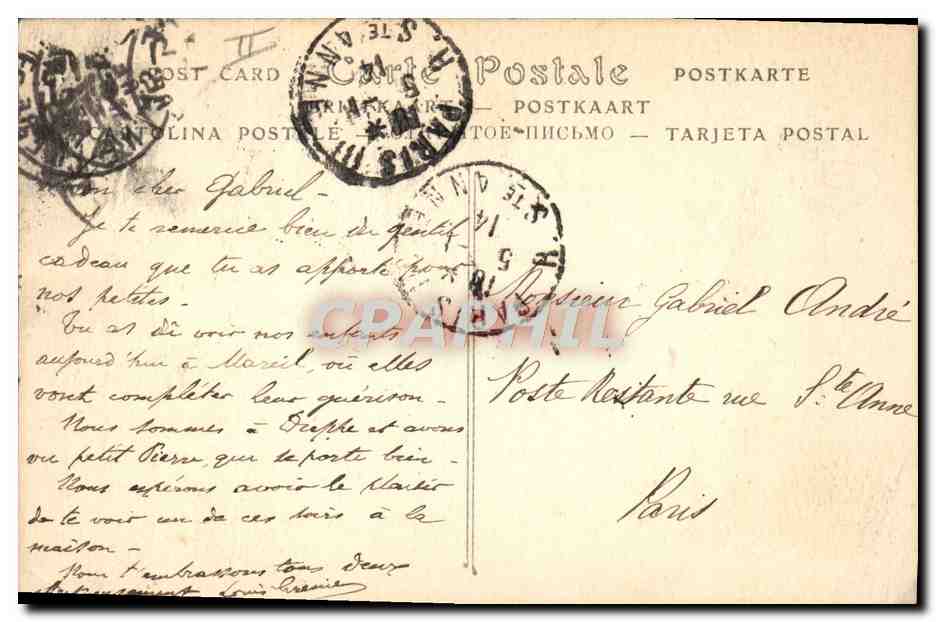 POST CARD Carte Postale POSTKARTE
BRIEFKAART — POSTKAART
CARTOLINA POSTALE — ОТКРЫТОЕ ПИСЬМО — TARJETA POSTAL
II
PARIS R. STE ANNE
14 5
10
PARIS R. STE ANNE
14 5
18
Mon cher Gabriel -
Je te remercie bien du gentil
cadeau que tu as apporté pour
nos petites -
Tu as dû voir nos enfants
aujourd'hui à Mareil, où elles
vont compléter leur guérison -
Nous sommes à Dieppe et avons
vu petit Pierre, qui se porte bien -
Nous espérons avoir le plaisir
de te voir un de ces soirs à la
maison -
Nous t'embrassons tous deux
affectueusement Louis
Monsieur Gabriel André
Poste Restante rue Ste Anne
Paris
CPAPHIL